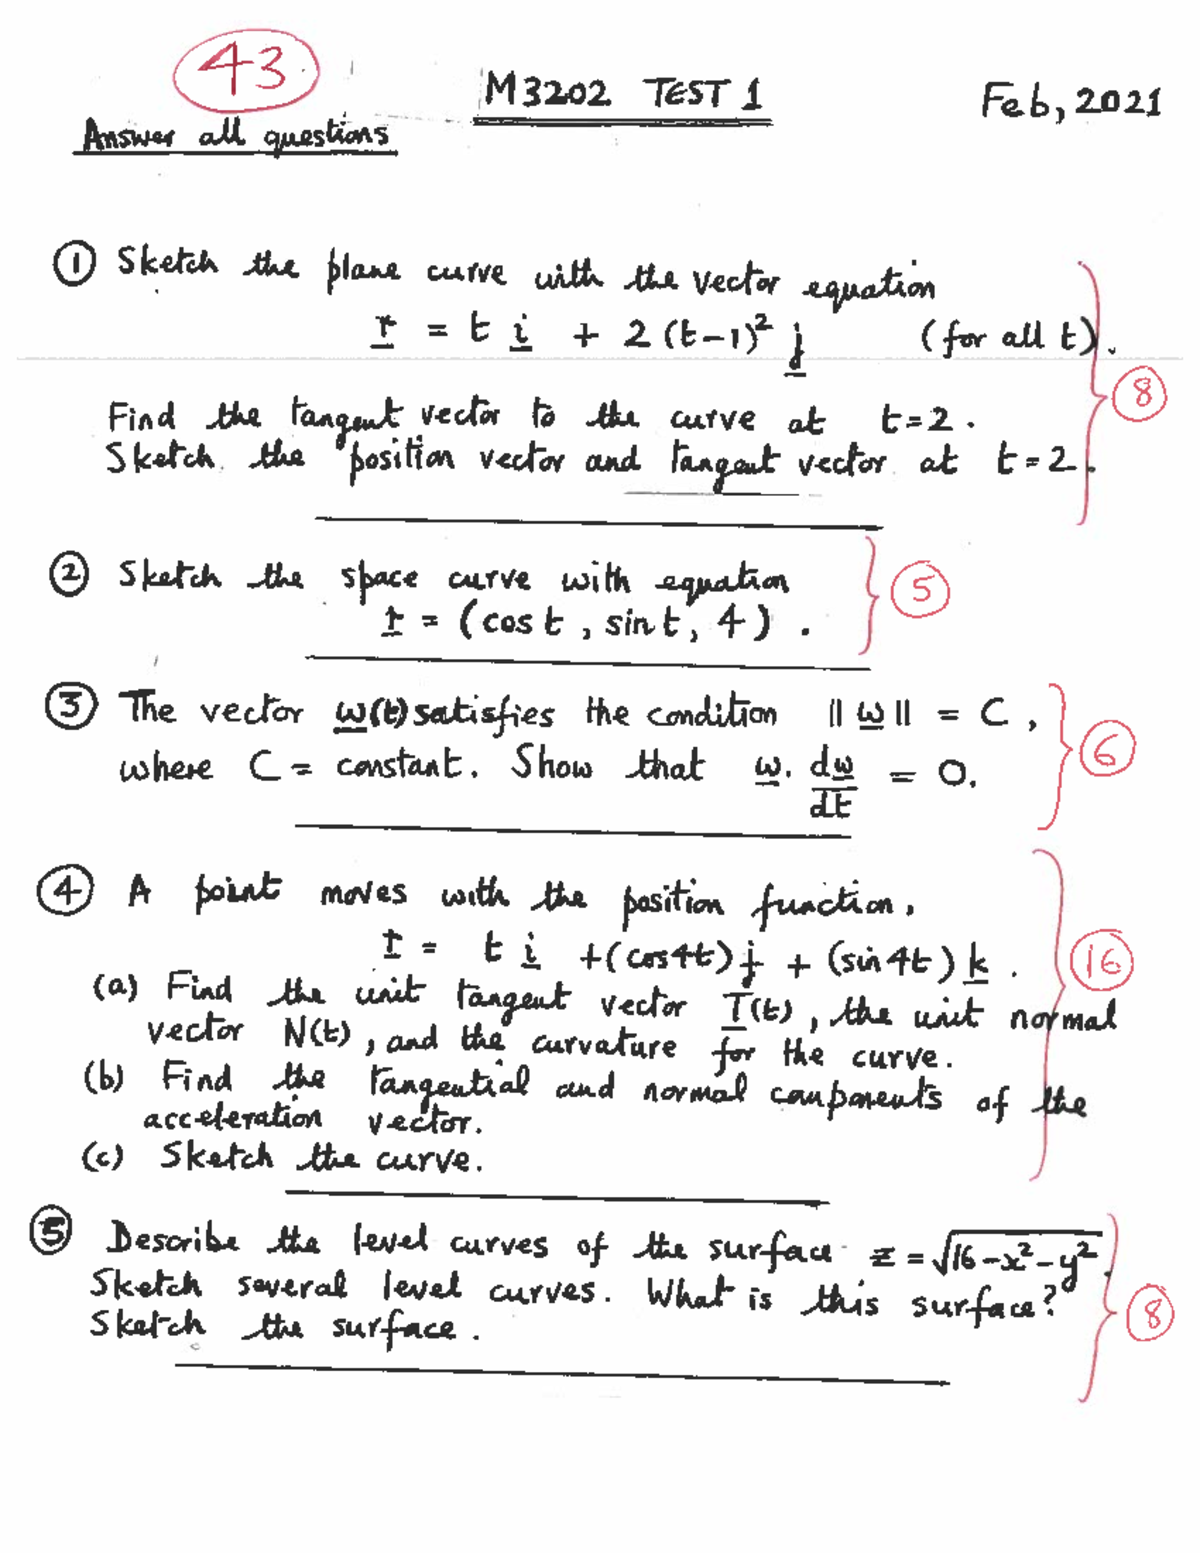 43
M3202 TEST 1
Feb, 2021
Answer all questions
① Sketch the plane curve with the vector equation
r = t i + 2 (t-1)² j (for all t).
8
Find the tangent vector to the curve at t=2.
Sketch the position vector and tangent vector at t=2.
② Sketch the space curve with equation
r = (cos t, sin t, 4).
5
③ The vector w(t) satisfies the condition ||w|| = C,
where C = constant. Show that w. dw/dt = 0.
6
④ A point moves with the position function,
r = t i + (cos4t) j + (sin 4t) k.
16
(a) Find the unit tangent vector T(t), the unit normal
vector N(t), and the curvature for the curve.
(b) Find the tangential and normal components of the
acceleration vector.
(c) Sketch the curve.
⑤ Describe the level curves of the surface z = √16-x²-y².
Sketch several level curves. What is this surface?
Sketch the surface.
8